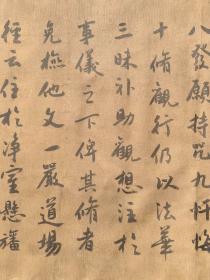 八發願持咒九懺悔
十脩觀行仍以法華
三昧补助觀想注於
事儀之下俾其脩者
免檢他文一嚴道場
經云住於淨室懸旛